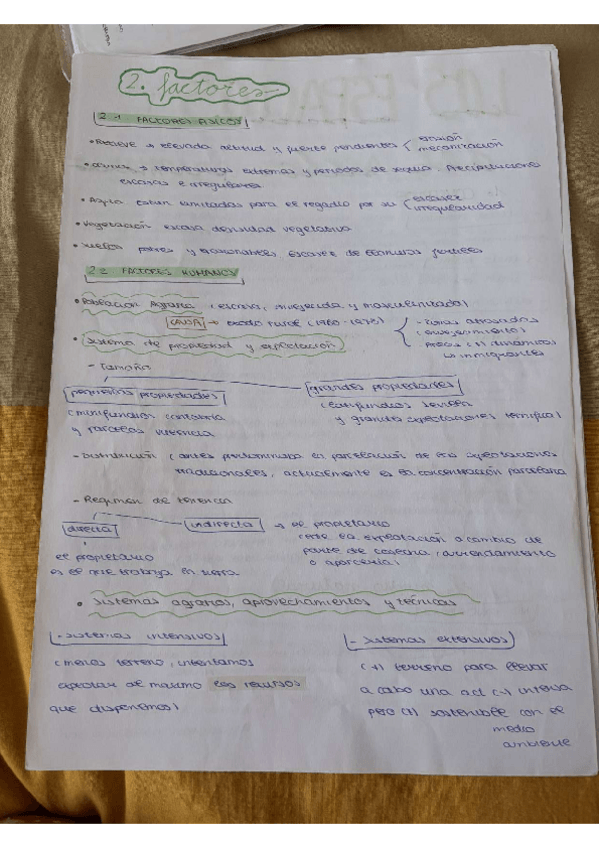 2. factores
2.1 FACTORES FÍSICOS
• Relieve → elevada altitud y fuertes pendientes { erosión
mecanización
• Clima → temperaturas extremas y periodos de sequía. Precipitaciones
escasas e irregulares
• Agua están limitadas para el regadío por su { escasez
irregularidad
• Vegetación escasa densidad vegetativa
• Suelos pobres y erosionables, escasez de llanuras fértiles
2.2 FACTORES HUMANOS
• Población Agraria (escasa, envejecida y masculinizada)
CAUSA → éxodo rural (1960-1973)
- zonas atrasadas
(envejecimiento)
(+) dinámicas
inmigrantes
• Sistema de propiedad y explotación
- Tamaño
pequeñas propiedades
(minifundios Cantabria
y parcelas Valencia
grandes propiedades
(latifundios Sevilla
y grandes explotaciones
- Distribución (antes predominaba la parcelación de esa explotaciones
tradicionales, actualmente es la concentración parcelaria
- Régimen de tenencia
directa
indirecta → el propietario
cede la explotación a cambio de
parte de cosecha (arrendamiento
o aparcería)
el propietario
es el que trabaja la tierra
• Sistemas agrarios, aprovechamientos y técnicas
- sistemas intensivos
(menos terreno, intentamos
explotar al máximo los recursos
que disponemos)
- Sistemas extensivos
(+) terreno para llevar
a cabo una act (-) intensa
pero (+) sostenible con el
medio
ambiente